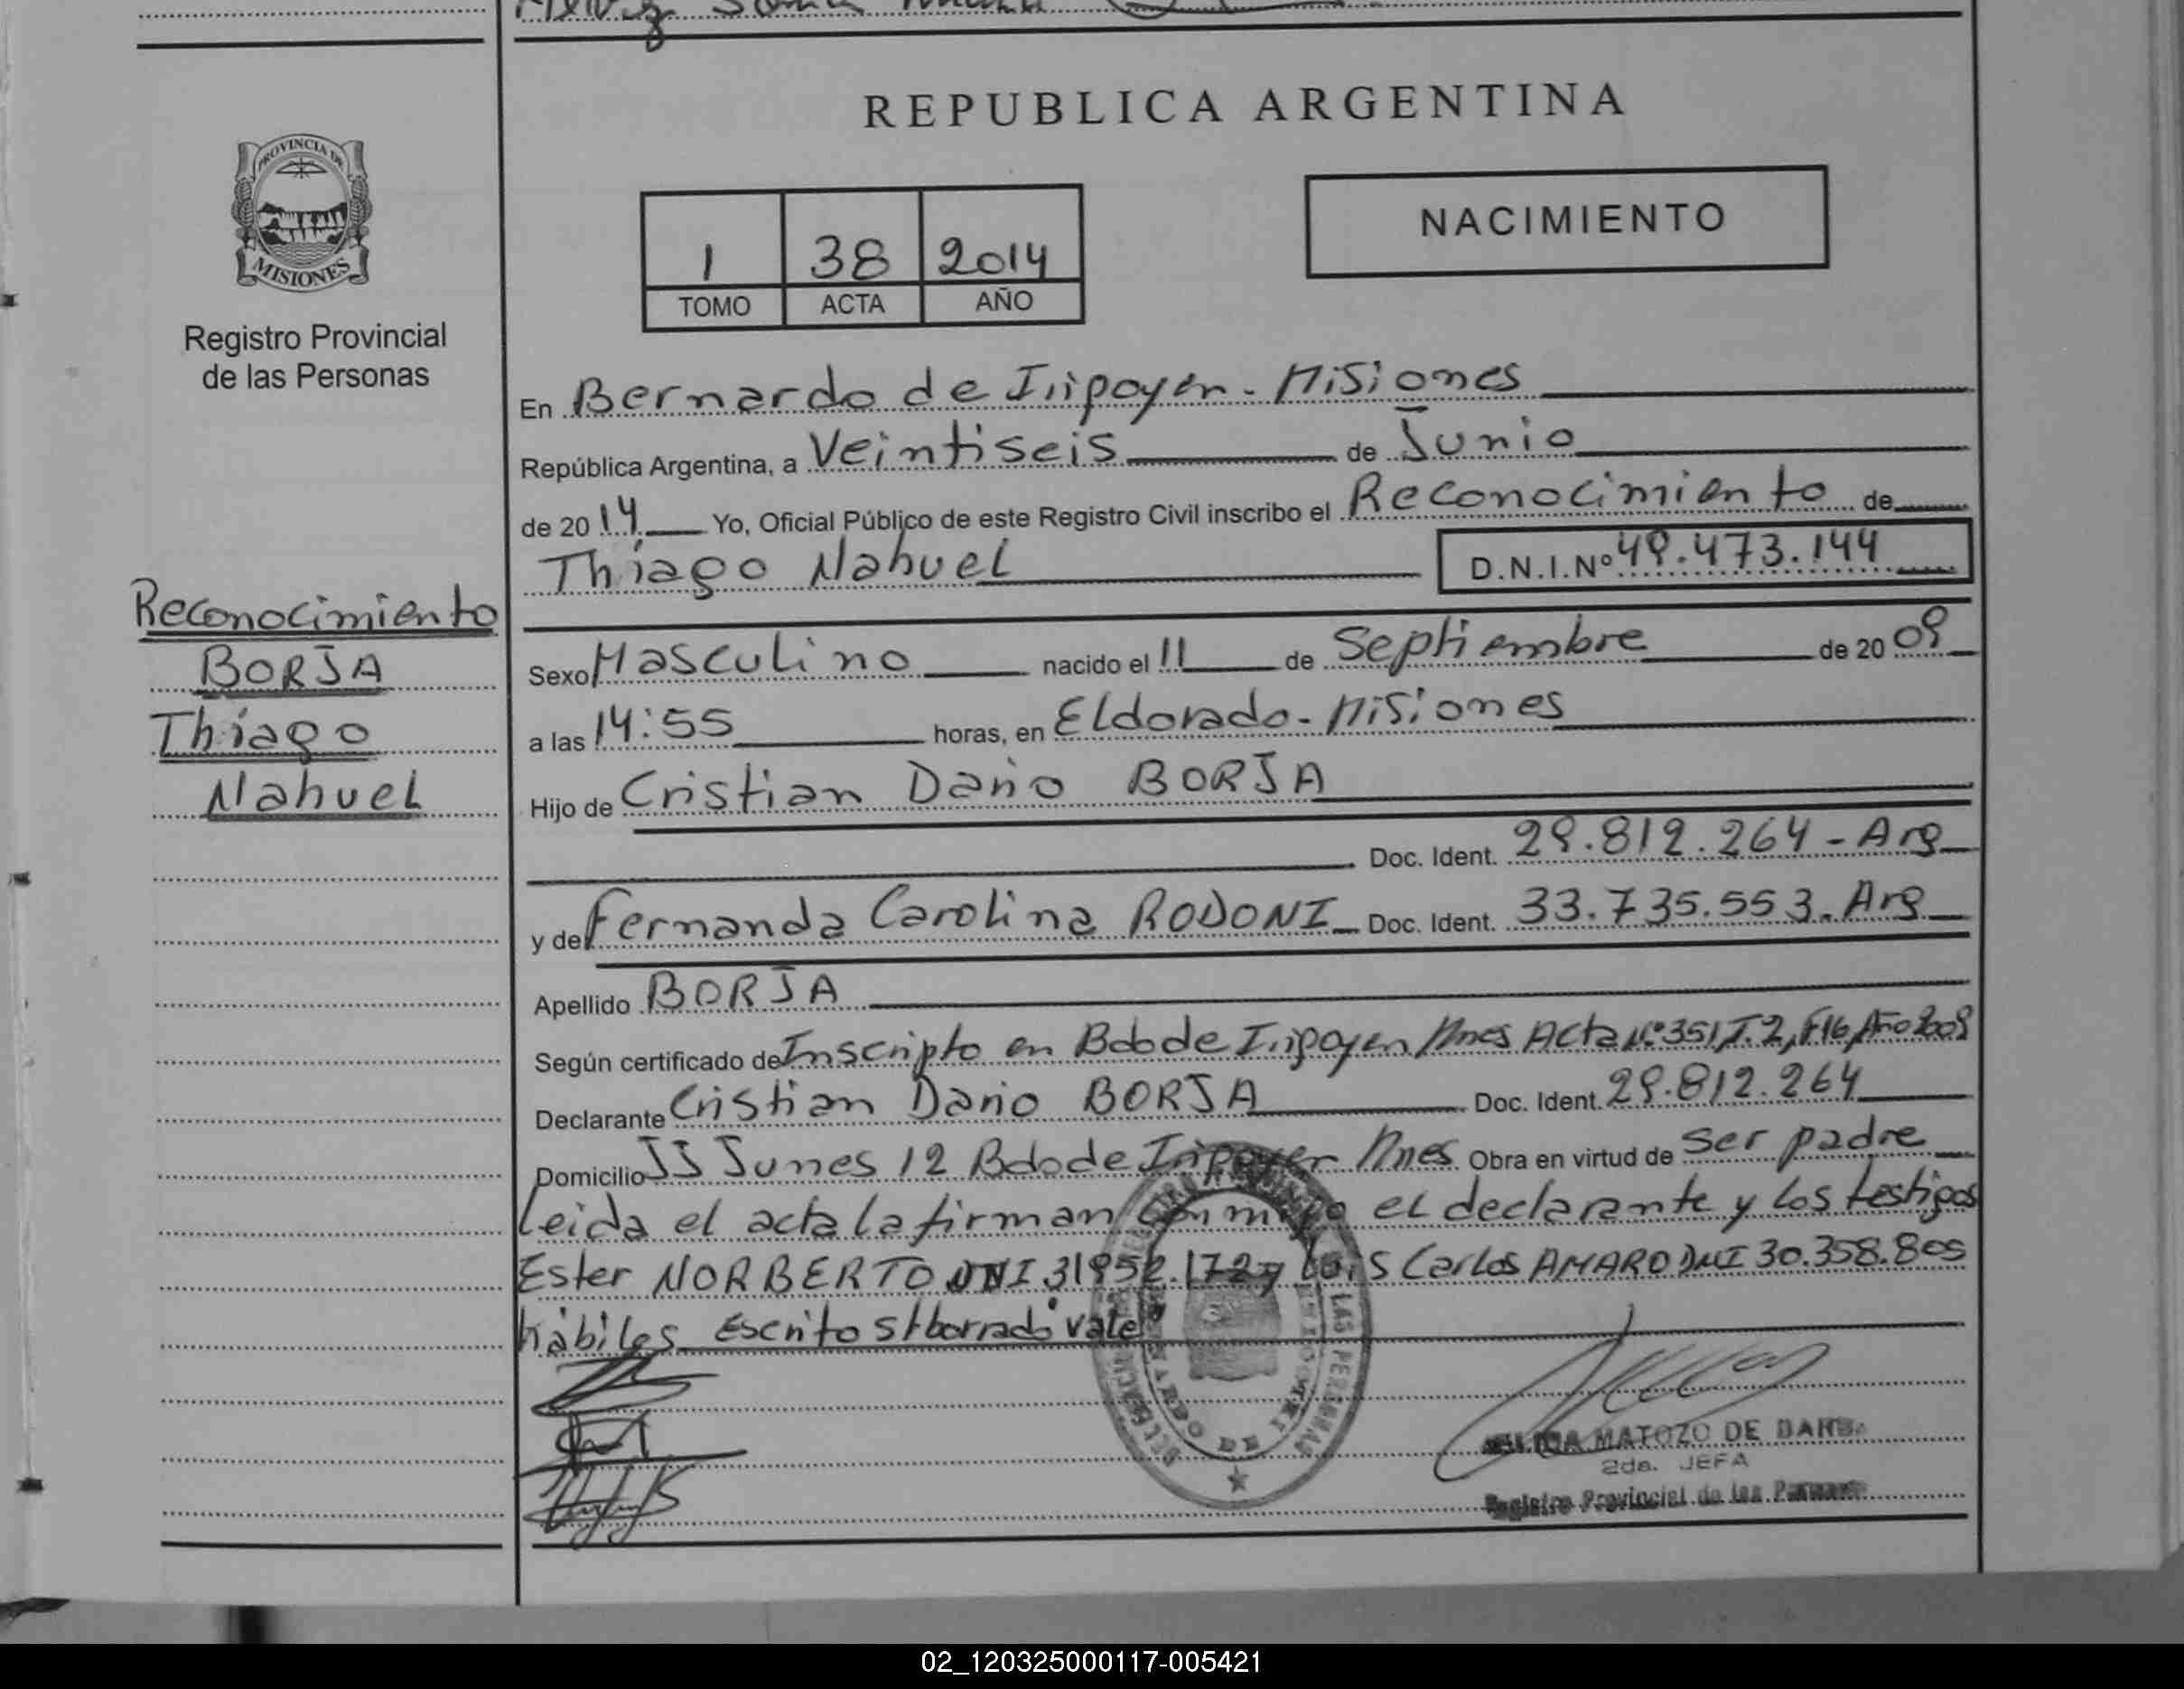 REPUBLICA ARGENTINA
PROVINCIA DE
MISIONES
Registro Provincial
de las Personas
NACIMIENTO
1 38 2014
TOMO ACTA AÑO
En Bernardo de Irigoyen - Misiones
República Argentina, a Veintiseis de Junio
de 2014 Yo, Oficial Público de este Registro Civil inscribo el Reconocimiento de
Thiago Nahuel D.N.I.Nº 49.473.144
Reconocimiento
BORJA
Thiago
Nahuel
Sexo Masculino nacido el 11 de Septiembre de 2009
a las 14:55 horas, en Eldorado - Misiones
Hijo de Cristian Dario BORJA
Doc. Ident. 29.812.264 - Arg
y de Fernanda Carolina RODONI Doc. Ident. 33.735.553. Arg
Apellido BORJA
Según certificado de Inscripto en Bdo de Irigoyen Mnes Acta Nº 351, T. 2, F 16, Año 2009
Declarante Cristian Dario BORJA Doc. Ident. 29.812.264
Domicilio JJ Junes 12 Bdo de Irigoyen Mnes Obra en virtud de ser padre
Leida el acta la firman conmigo el declarante y los testigos
Ester NORBERTO DNI 31952.172 y Luis Carlos AMARO DNI 30.358.805
hábiles Escrito s/borrado "vale"
MATOZO DE
2da. JEFA
Registro Provincial de las Personas
02_120325000117-005421